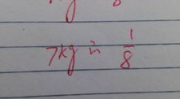 7kg in 1/8